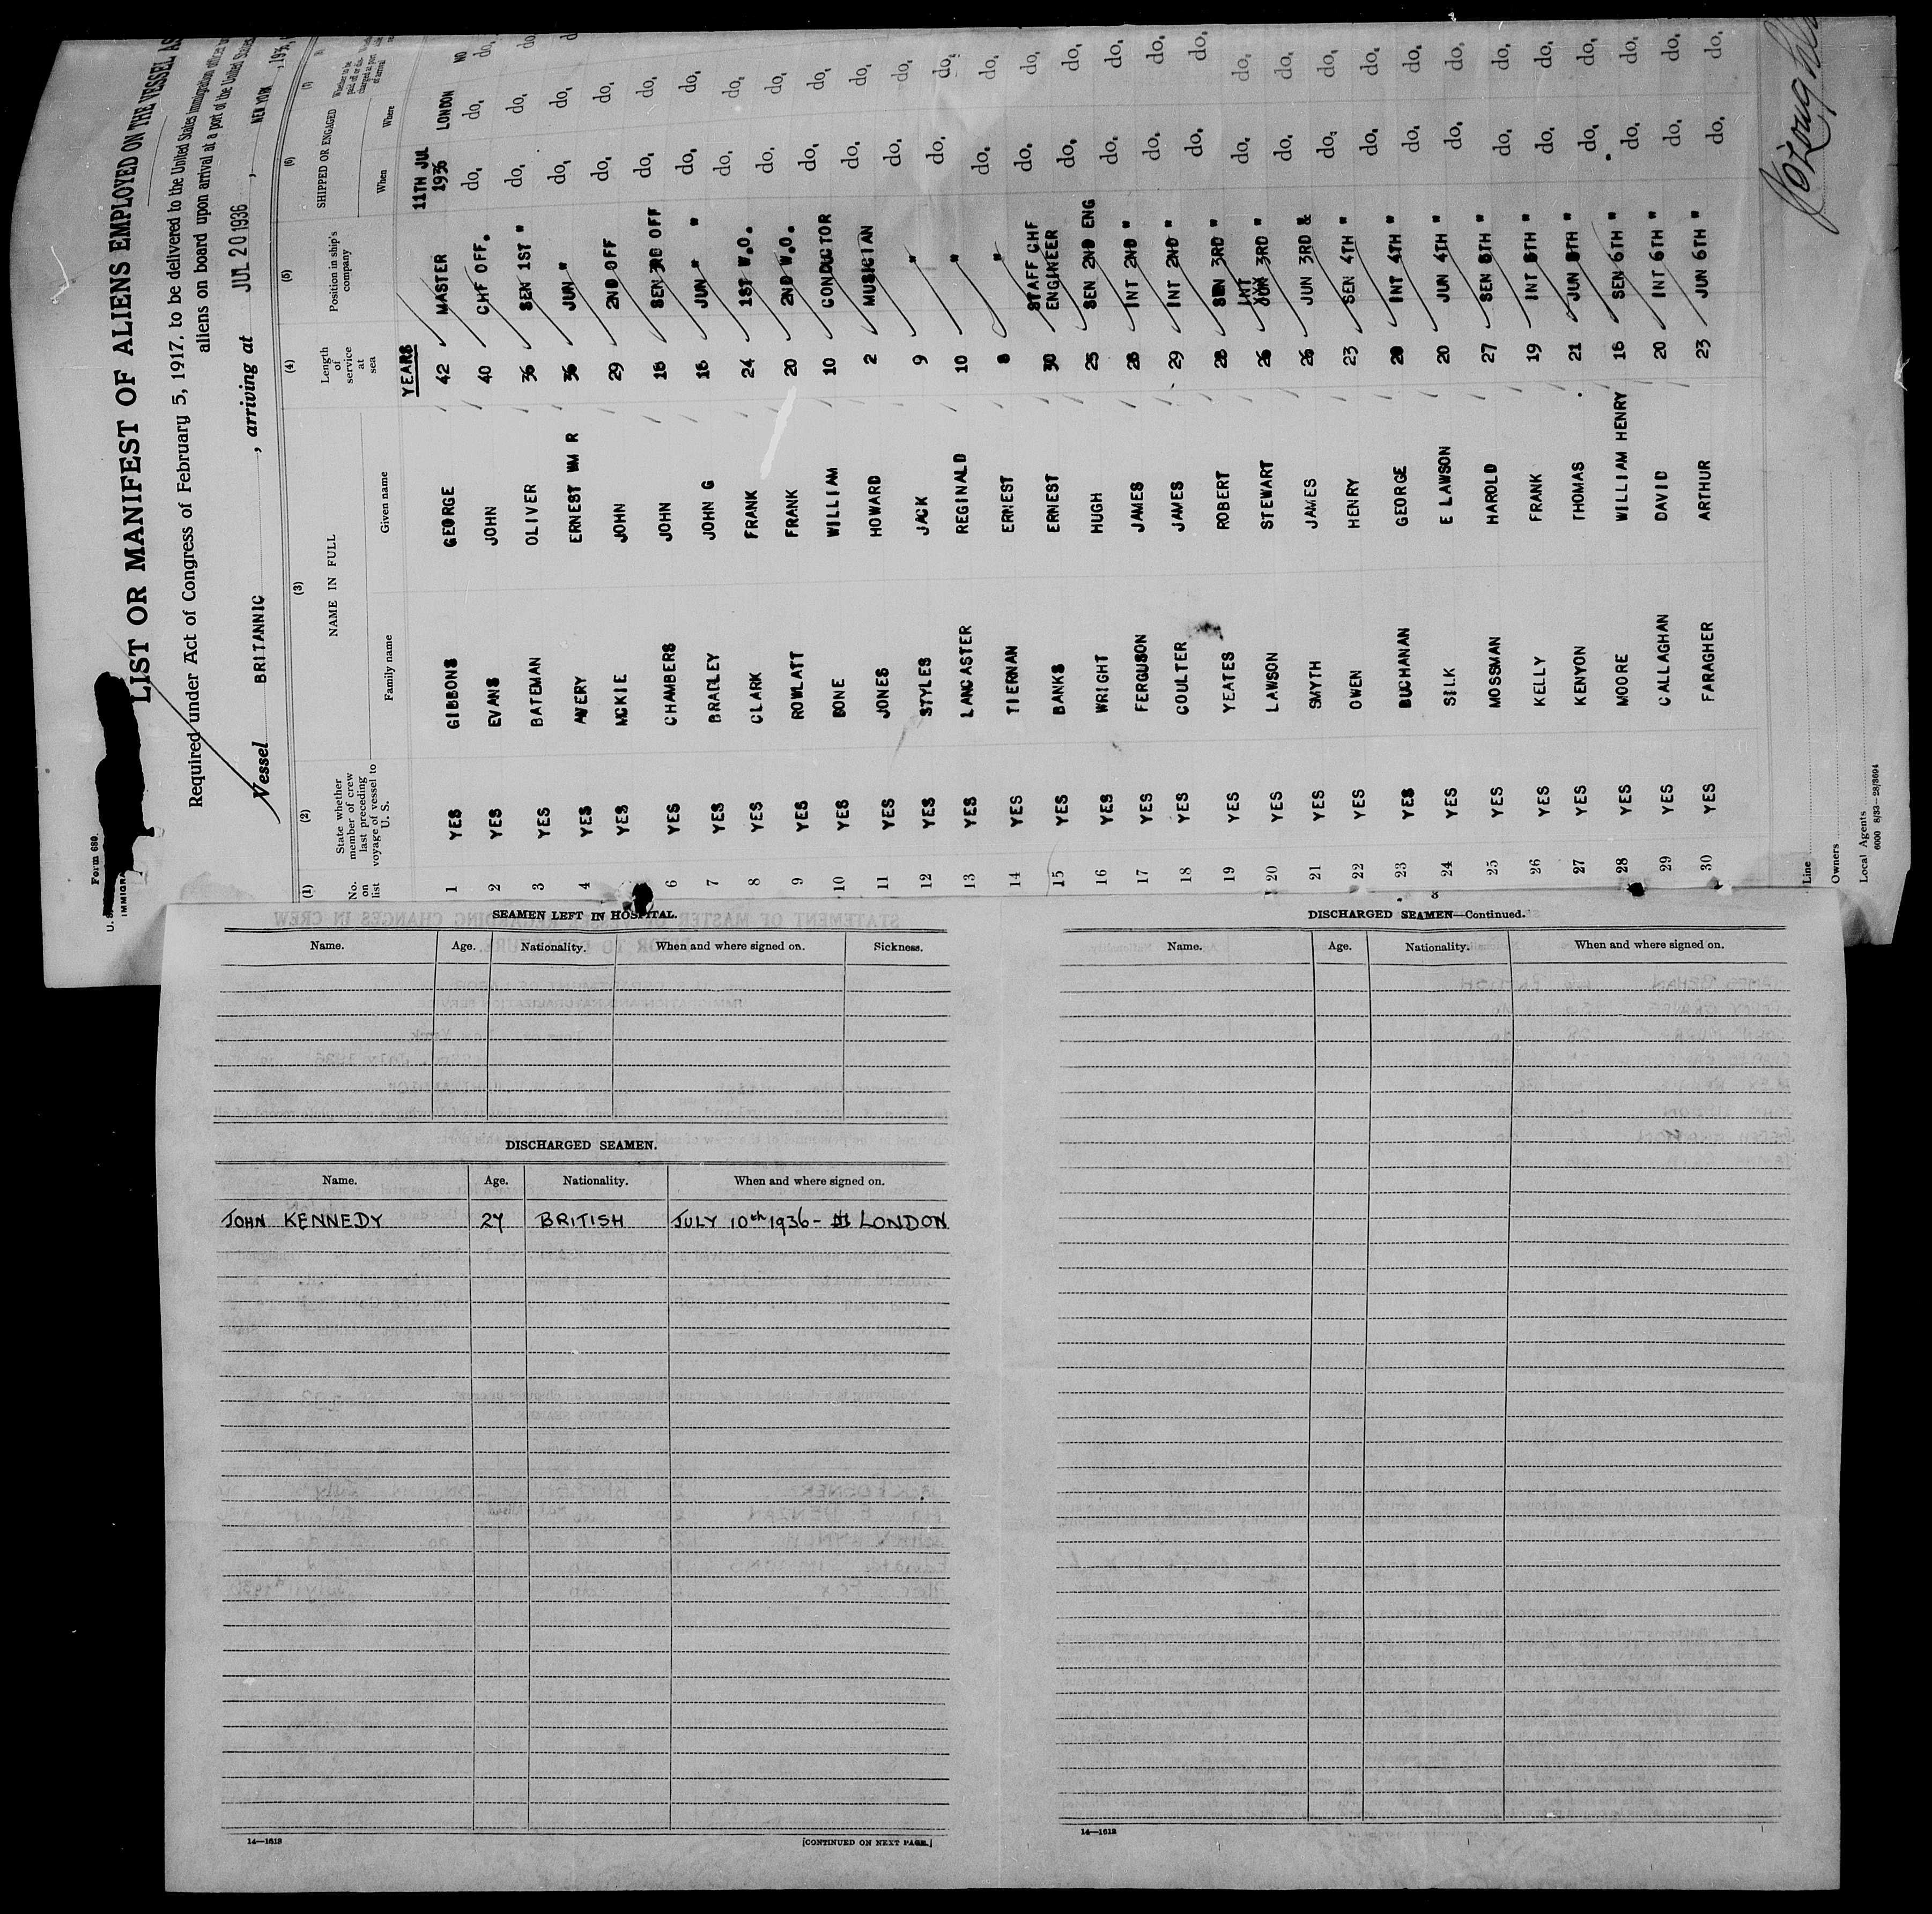 Form 680
U. S.
IMMIGRA
LIST OR MANIFEST OF ALIENS EMPLOYED ON THE VESSEL AS
Required under Act of Congress of February 5, 1917, to be delivered to the United States immigration officer
aliens on board upon arrival at a port of the United States
Vessel BRITANNIC , arriving at JUL 20 1936 , NEW YORK , 193
(1) (2) (3) (4) (5) (6) (7)
No. on list State whether member of crew last preceding voyage of vessel to U. S. NAME IN FULL Family name Given name Length of service at sea Position in ship's company SHIPPED OR ENGAGED When Where Whether to be paid off or discharged at port of arrival
YEARS
1 YES GIBBONS GEORGE 42 MASTER 11TH JUL 1936 LONDON NO
2 YES EVANS JOHN 40 CHF OFF. do. do. do.
3 YES BATEMAN OLIVER 36 SEN 1ST " do. do. do.
4 YES AVERY ERNEST WM R 36 JUN " do. do. d
YES MCKIE JOHN 29 2ND OFF do. do.
6 YES CHAMBERS JOHN 18 SEN 3RD OFF do. do.
7 YES BRADLEY JOHN G 16 JUN " " do. do.
8 YES CLARK FRANK 24 1ST W.O. do. do.
9 YES ROWLATT FRANK 20 2ND W.O. do. do.
10 YES BONE WILLIAM 10 CONDUCTOR do. do.
11 YES JONES HOWARD 2 MUSICIAN do. do.
12 YES STYLES JACK 9 " do. do.
13 YES LANCASTER REGINALD 10 " do. do.
14 YES TIERNAN ERNEST 8 " do. do.
15 YES BANKS ERNEST 30 STAFF CHF ENGINEER do. do.
16 YES WRIGHT HUGH 25 SEN 2ND ENG do. do.
17 YES FERGUSON JAMES 28 INT 2ND " do. do.
18 YES COULTER JAMES 29 INT 2ND " do. do.
19 YES YEATES ROBERT 28 SEN 3RD " do. do.
20 YES LAWSON STEWART 26 INT 3RD " do. do.
21 YES SMYTH JAMES 26 JUN 3RD & do. do.
22 YES OWEN HENRY 23 SEN 4TH " do. do.
23 YES BUCHANAN GEORGE 20 INT 4TH " do. do.
24 YES SILK E LAWSON 20 JUN 4TH " do. do.
25 YES MOSSMAN HAROLD 27 SEN 5TH " do. do.
26 YES KELLY FRANK 19 INT 5TH " do. do.
27 YES KENYON THOMAS 21 JUN 5TH " do. do.
28 YES MOORE WILLIAM HENRY 16 SEN 6TH " do. do.
29 YES CALLAGHAN DAVID 20 INT 6TH " do. do.
30 YES FARAGHER ARTHUR 23 JUN 6TH " do. do.
Line
Owners
Local Agents
6000 8/33—28/3694
SEAMEN LEFT IN HOSPITAL.
Name. Age. Nationality. When and where signed on. Sickness.
DISCHARGED SEAMEN.
Name. Age. Nationality. When and where signed on.
JOHN KENNEDY 27 BRITISH JULY 10th 1936 - LONDON
14—1618
[CONTINUED ON NEXT PAGE.]
3
DISCHARGED SEAMEN—Continued.
Name. Age. Nationality. When and where signed on.
14—1618